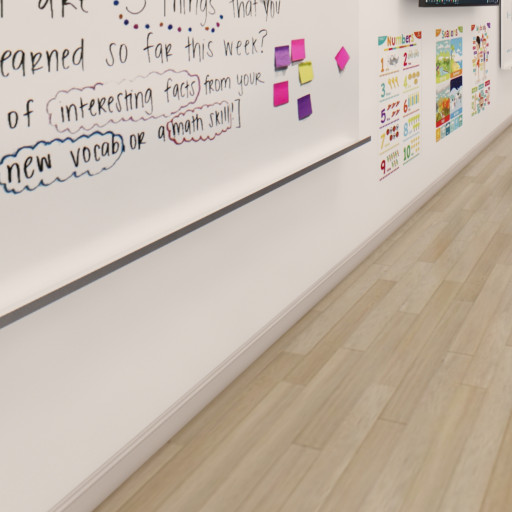 are 3 things that you
earned so far this week?
of interesting facts from your
new vocab or a math skill!]
Numbers
1 2
3 4
5 6
7 8
9 10